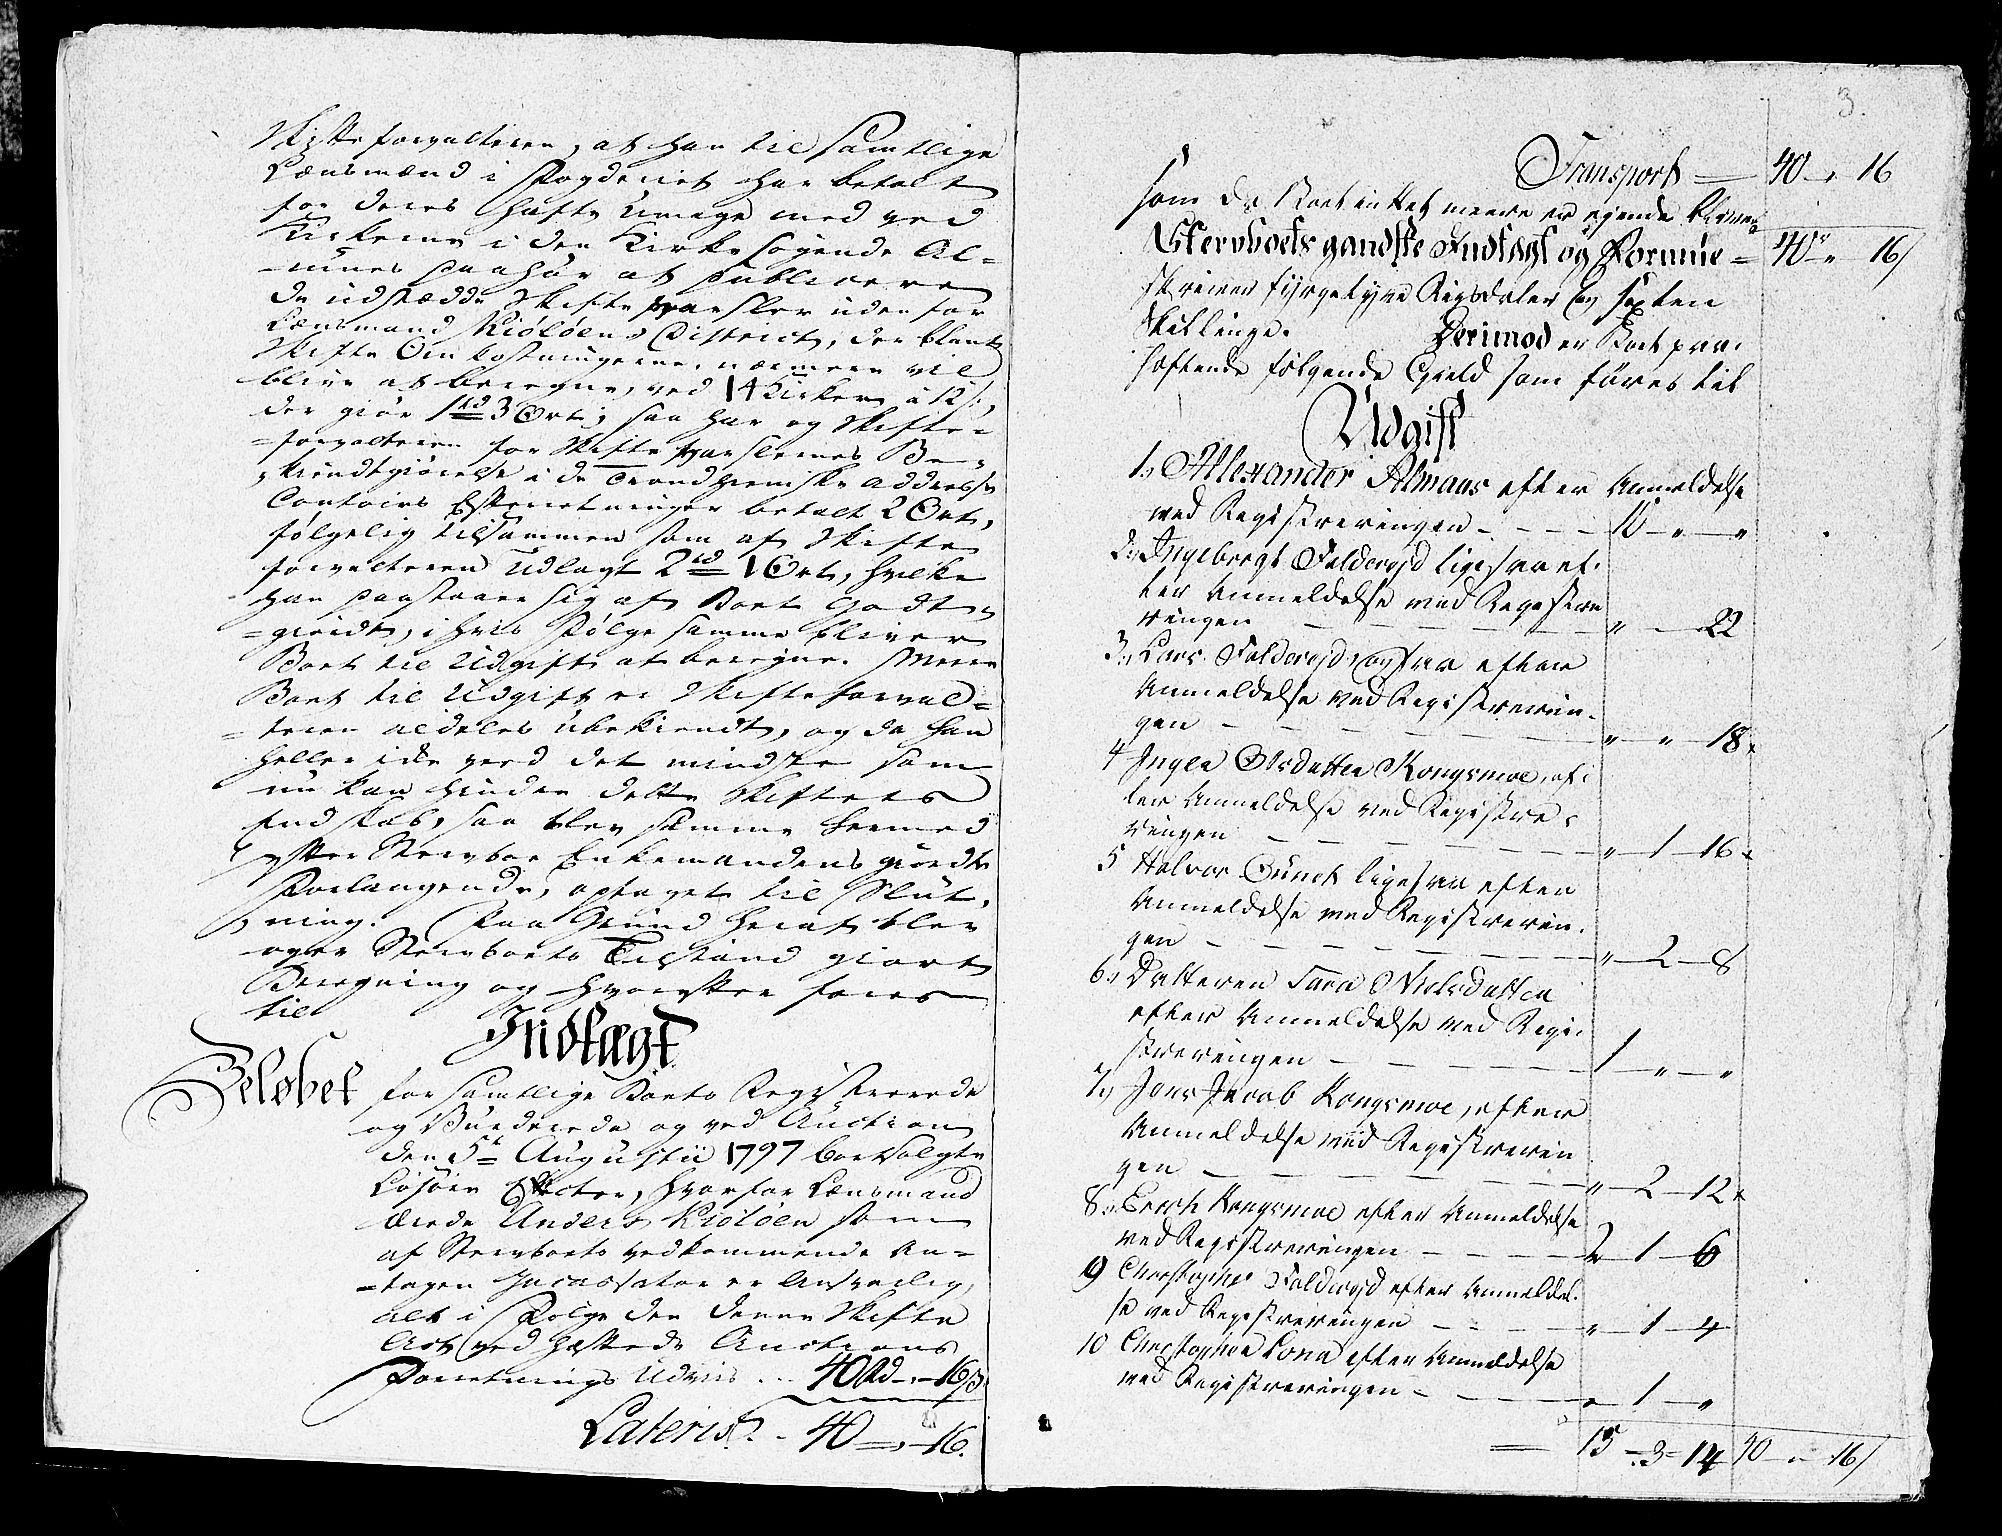 Skifteforvalteren, at han til samtlige
Lænsmænd i Fogderiet har betalt
for deres hafte Umage med ved
Kirkerne i den Kirkesøgende Al-
-mues Paahør at publicere
de udstædde Skifte Varsler uden for
Lænsmand Kiøløens District, der blant
Skifte Omkostningerne nærmere vil
blive at beregne, ved 14 Kirker à 12 s,
der giør 1 rd 3 Ort; saa har og Skifte-
-forvalteren for Skifte Varslernes Be-
-kiendtgiørelse i de Trondhiemske Addresse
Contoirs Efterretninger betalt 2 Ort,
følgelig tilsammen som af Skifte
forvalteren Udlagt 2 rd 1 Ort, hvilke
han paastaaer sig af Boet godt-
-giordt, i hvis Følge samme bliver
Boet til Udgift at beregne. Meere
Boet til Udgift er Skifteforval-
-teren aldeles ubekiendt, og da han
heller ikke veed det mindste som
nu kan hindre dette Skiftets
Endskab, saa blev samme hermed
efter Stervboe Enkemandens giordte
Forlangende, optaget til Slut-
ning. Paa Grund heraf blev
over Stervboets Tilstand giort
Beregning og hvorefter føres
til
Indtægt
Beløbet for samtlige Boets Registrerede
og Vurderede og ved Auction
den 5te Augustii 1797 bortsolgte
Løsøre Effecter, hvorfor Lænsmand
ærede Anders Kiøløen som
af Stervboets vedkommende An-
-tagen Incassator er Ansvarlig,
alt i Følge den denne Skifte
Act vedhæftede Auctions
Forretnings Udviis ... 40 Rd - " - 16 s
Lateris . - 40 - " - 16.
3.
Transport — 40 - " 16
Som da Boet intet meere er ejende bliver
Stervboets gandske Indtægt og Formue = 40 r " 16 /
skriver fyrgetyve Rigsdaler og sexten
Skillinge. Derimod er Boet paa-
heftende følgende Gield som føres til
Udgift
1, Allexander Almaas efter Anmeldelse
ved Registreringen - - - - 10 - " - "
2, Ingebrigt Folderejd ligesaa ef-
ter Anmeldelse ved Registre
ringen - - - " - - 22
3, Lars Folderejd ogsaa efter
Anmeldelse ved Registrerin-
gen - - - " - " - 18
4 Inger Olsdatter Kongsmoe, ef-
ter Anmeldelse ved Registre-
ringen - - - " - 1 - 16
5 Halvor ligesaa efter
Anmeldelse ved Registrerin-
gen - - - " - 2 - 8
6, Datteren Sara Nielsdatter
efter Anmeldelse ved Regi-
streringen - - - 1 - " - "
7, Jens Jacob Kongsmoe, efter
Anmeldelse ved Registrerin
gen - - - " - 2 - 12
8, Erich Kongsmoe efter Anmeldelse
ved Registreringen - - - 2 - 1 - 6
9 Christopher Folderejd efter Anmeldel-
se ved Registreringen - - - " - 1 - 4
10 Christopher Lona efter Anmeldelse
ved Registreringen - - - " - 1 - "
— 15 - 3 - 14 40 - " - 16 /